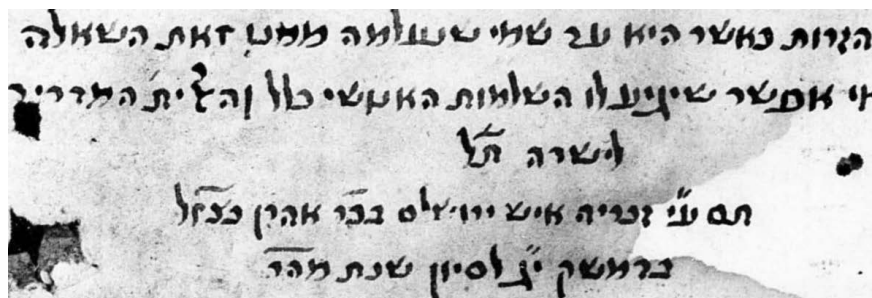 הזרות כאשר היא עד שמי שנעלמה ממנו זאת השאלה
אי אפשר שיגיע לו השלמות האנושי כלל והש״ית המדריך
לישרה ת״ל
תם ע״י זכריה איש ירושלם בכ״ר אהרן
בדמשק י״ג לסיון שנת